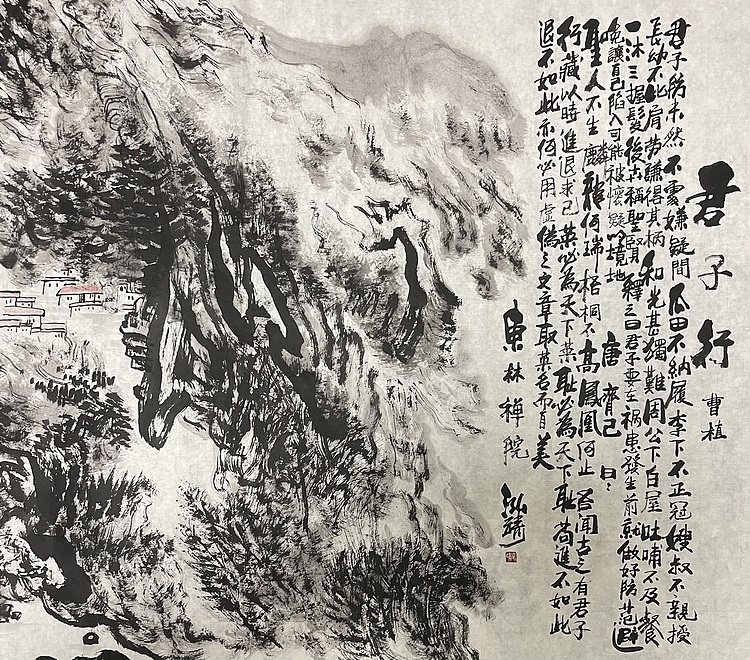 君子行 曹植
君子防未然 不處嫌疑間 瓜田不納履 李下不正冠 嫂叔不親授
長幼不比肩 勞謙得其柄 和光甚獨難 周公下白屋 吐哺不及餐
一沐三握髮 後世稱聖賢 釋之曰君子要在禍患發生前就做好防范避
免讓自己陷入可能被懷疑的境地 唐 齊己 曰:
聖人不生 麟龍何瑞 梧桐不高 鳳凰何止 吾聞古之有君子
行藏以時 進退求己 榮必為天下榮 恥必為天下恥 苟進不如此
退不如此 亦何必用虛偽之文章 取榮名而自美
東林禪院